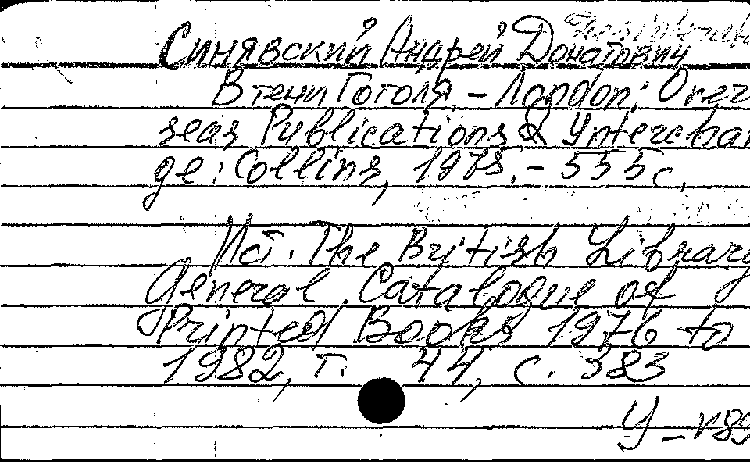 Синявский Андрей Донатович
В тени Гоголя. – London: Over
seas Publications & Interchan
ge: Collins, 1975. – 555 с.
Ист. The British Library
General Catalogue of
Printed Books 1976 to
1982, т. 44, с. 383